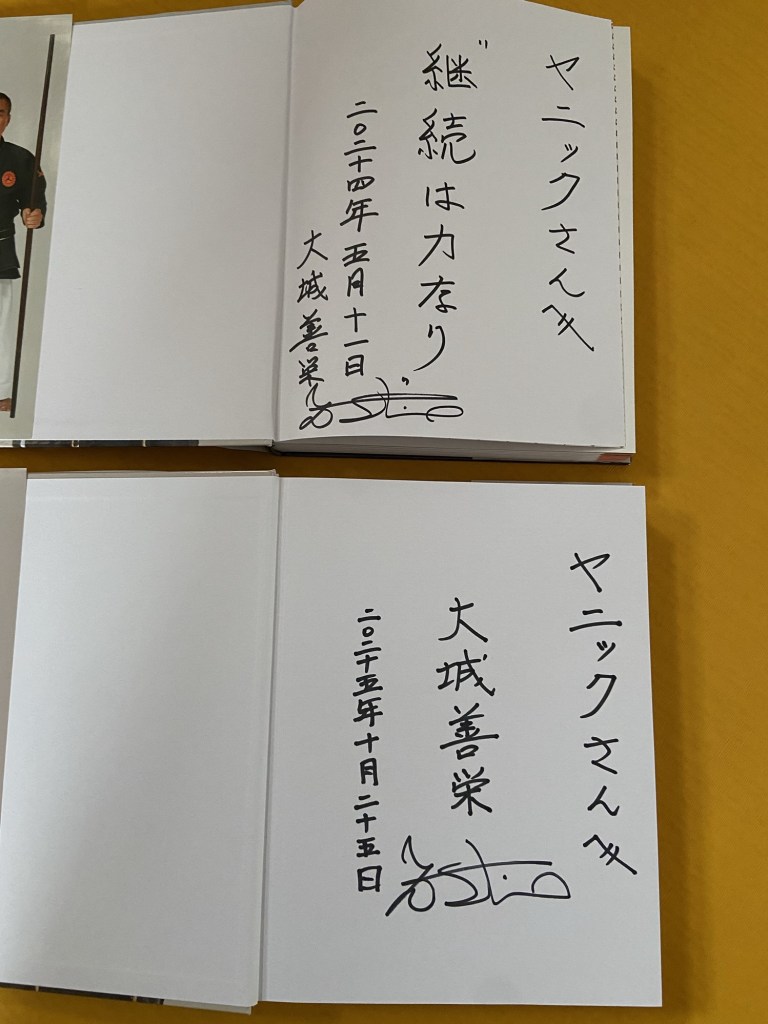 ヤニックさんへ
継続は力なり
二〇二十四年 五月十一日
大城善栄
ヤニックさんへ
大城善栄
二〇二十五年十月二十五日